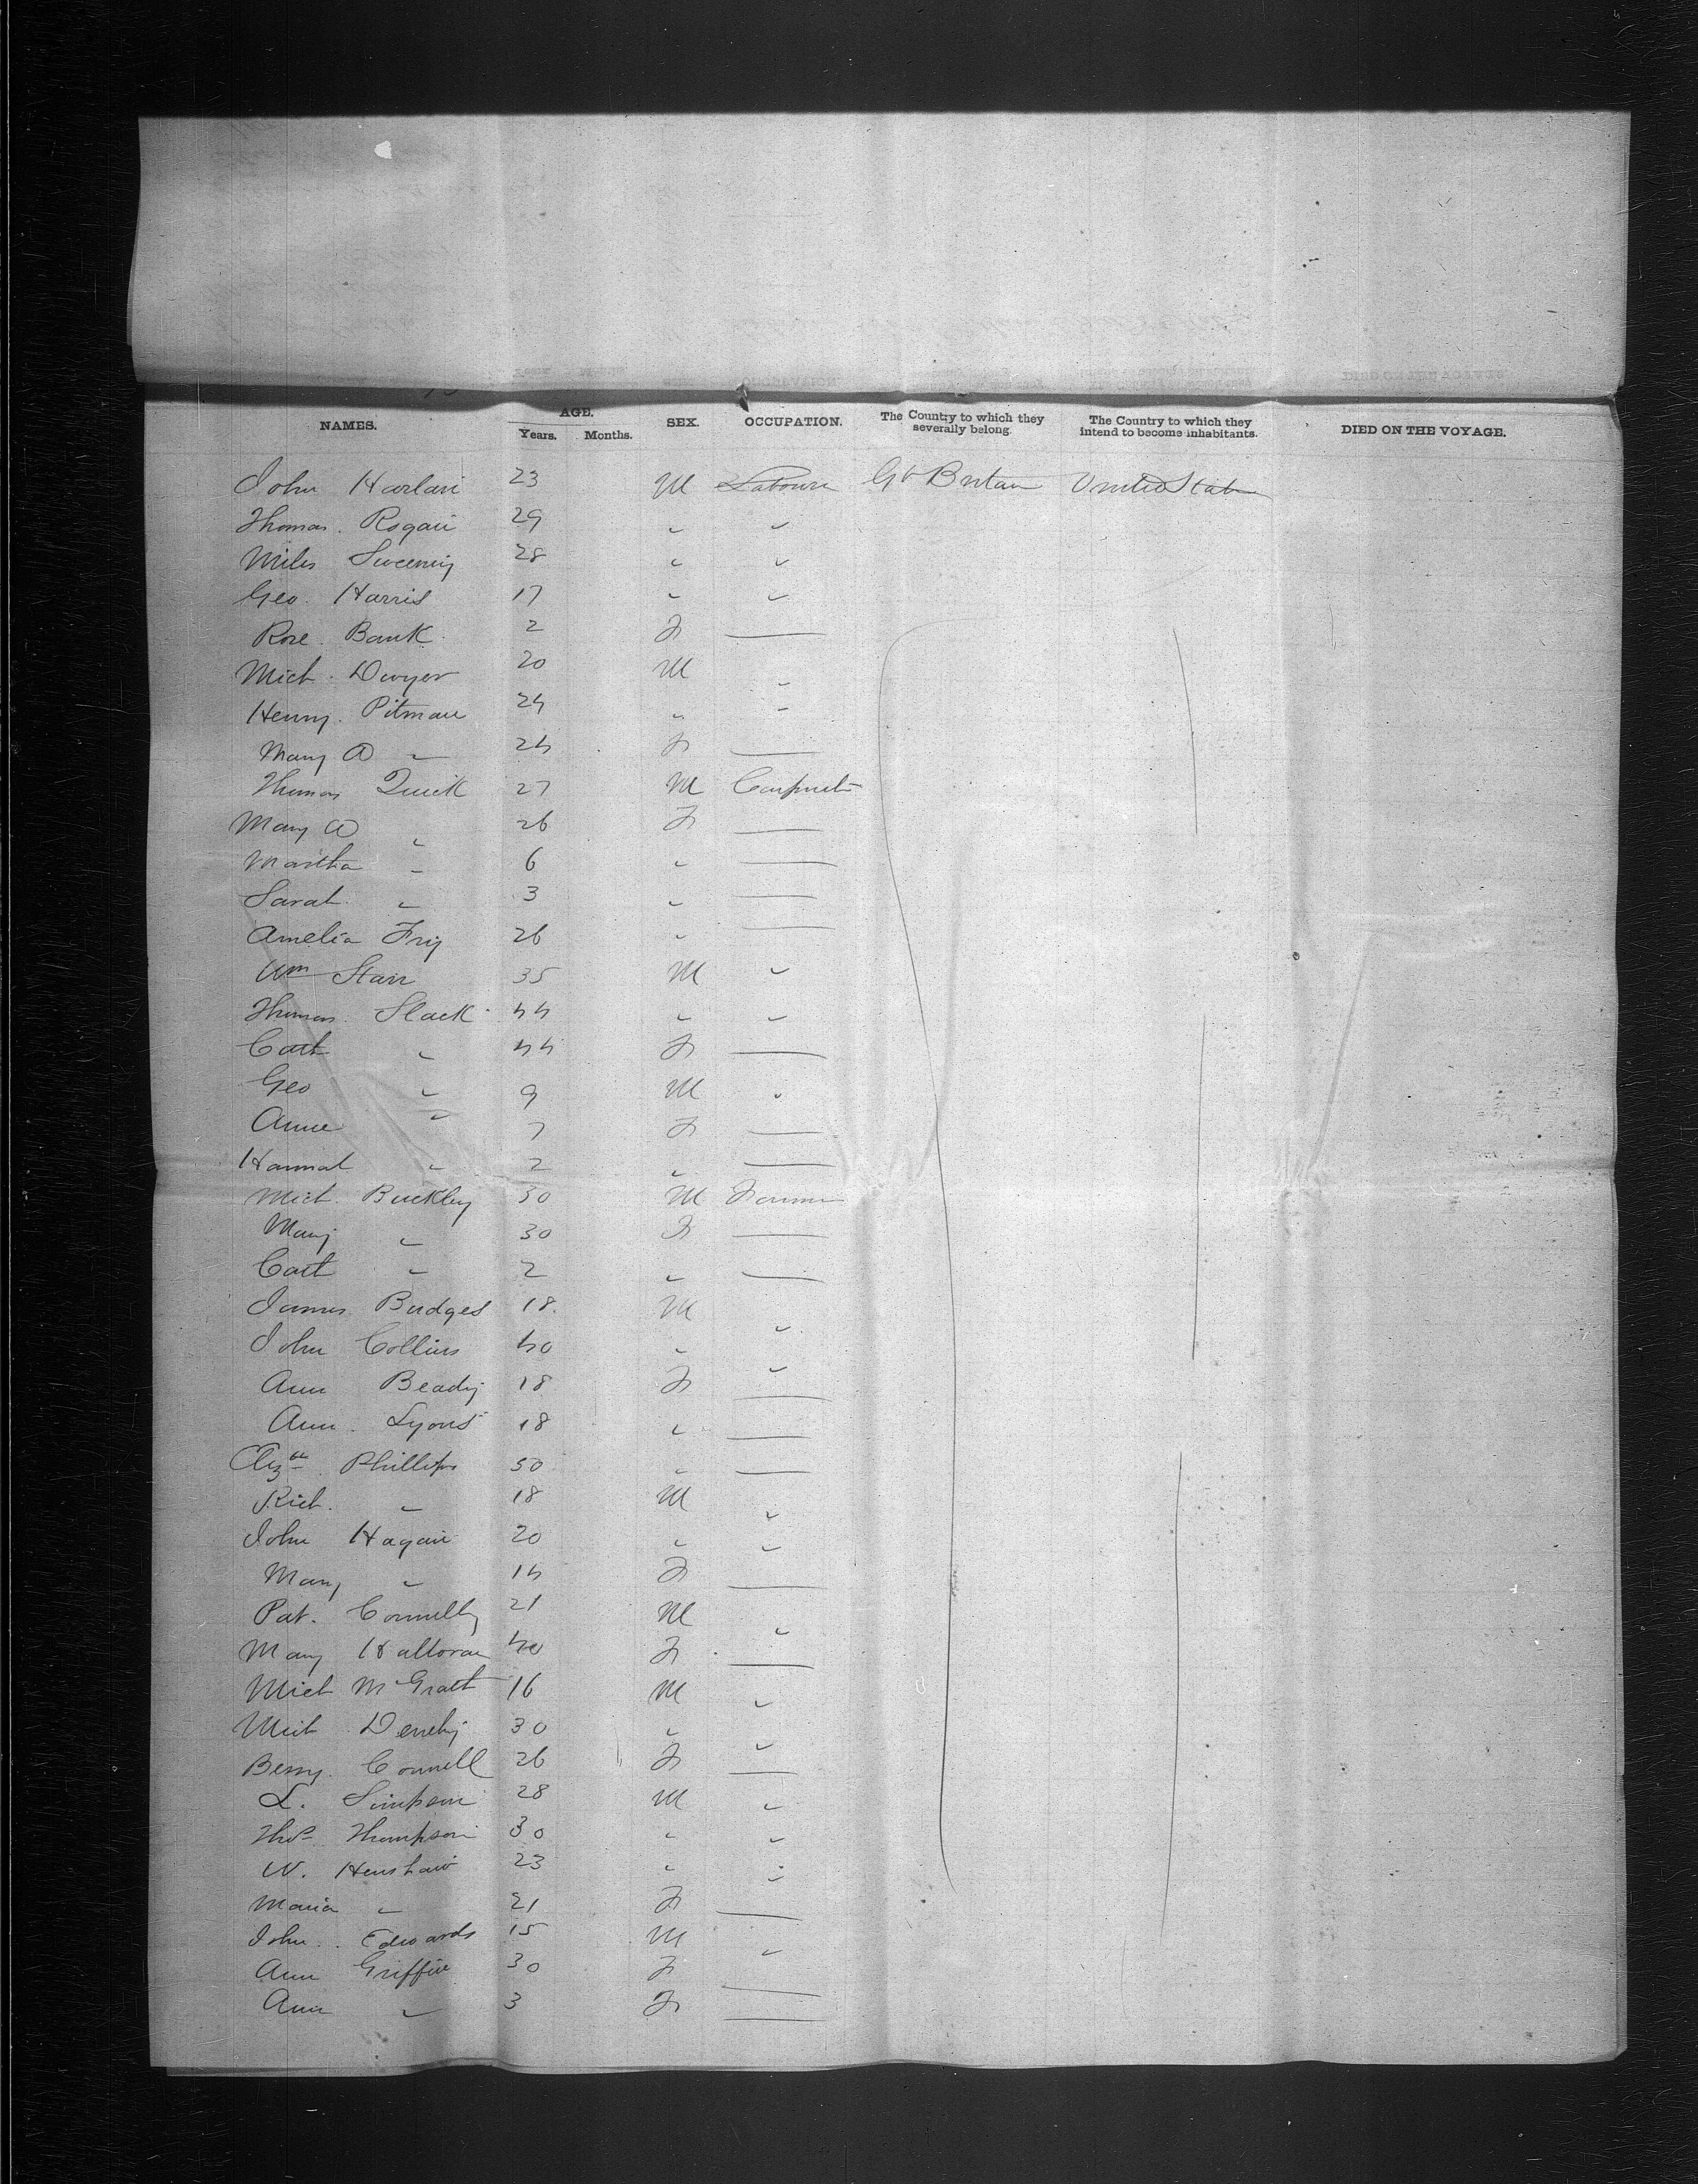 NAMES. AGE. Years. Months. SEX. OCCUPATION. The Country to which they severally belong. The Country to which they intend to become inhabitants. DIED ON THE VOYAGE.
John Harlan 23 M Laborer Gt Britain United States
Thomas. Rogan 29 " "
Miles Sweeny 28 " "
Geo. Harris 17 " "
Rose. Bank. 2 F —
Mich. Dwyer 20 M "
Henry. Pitman 24 " "
Mary A " 24 F —
Thomas Quick 27 M Carpenter
Mary A " 26 F —
Martha " 6 " —
Sarah. " 3 " —
Amelia Fry 26 " —
Wm Starr 35 M "
Thomas. Slack 44 " "
Cath " 44 F —
Geo " 9 M "
Annie " 7 F —
Hannah " 2 " —
Mich. Buckley 30 M Farmer
Mary " 30 F —
Cath " 2 " —
James. Budges 18. M "
John Collins 40 " "
Ann Beady 18 F —
Ann. Lyons 18 " —
Elizth. Phillips 50 " —
Rich. " 18 M "
John Hagan 20 " "
Mary " 14 F —
Pat. Connelly 21 M "
Mary Halloran 40 F —
Mich McGrath 16 M "
Mich Denehy 30 " "
Bessy. Connell 26 F —
L. Simpson 28 M "
Thos. Thompson 30 " "
W. Henshaw 23 " "
Maria " 21 F —
John. Edwards 15 M "
Ann Griffin 30 F —
Ann " 3 F —